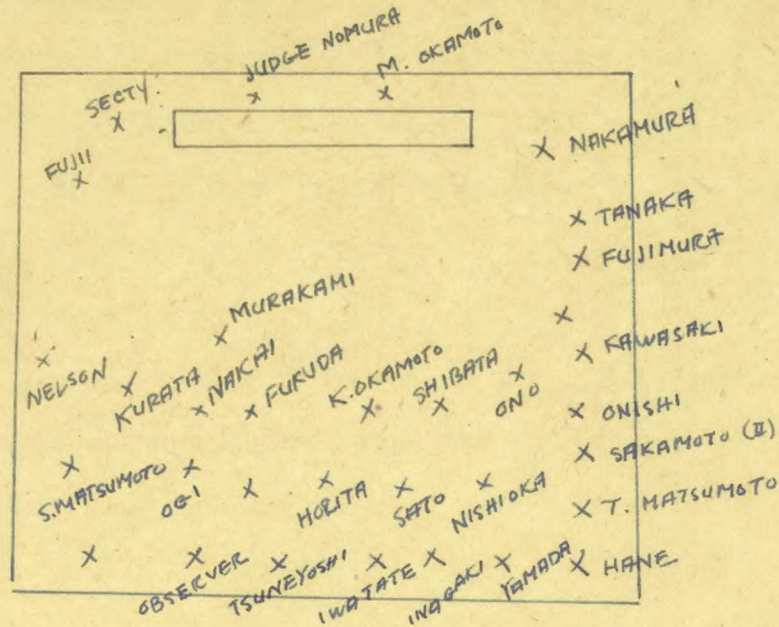 JUDGE NOMURA
M. OKAMOTO
SECTY.
FUJII
NAKAMURA
TANAKA
FUJIMURA
MURAKAMI
NELSON
KURATA
NAKAI
FUKUDA
K. OKAMOTO
SHIBATA
ONO
KAWASAKI
ONISHI
SAKAMOTO (II)
S. MATSUMOTO
OGI
HORITA
SATO
NISHIOKA
T. MATSUMOTO
OBSERVER
TSUNEYOSHI
IWATATE
INAGAKI
YAMADA
HANE